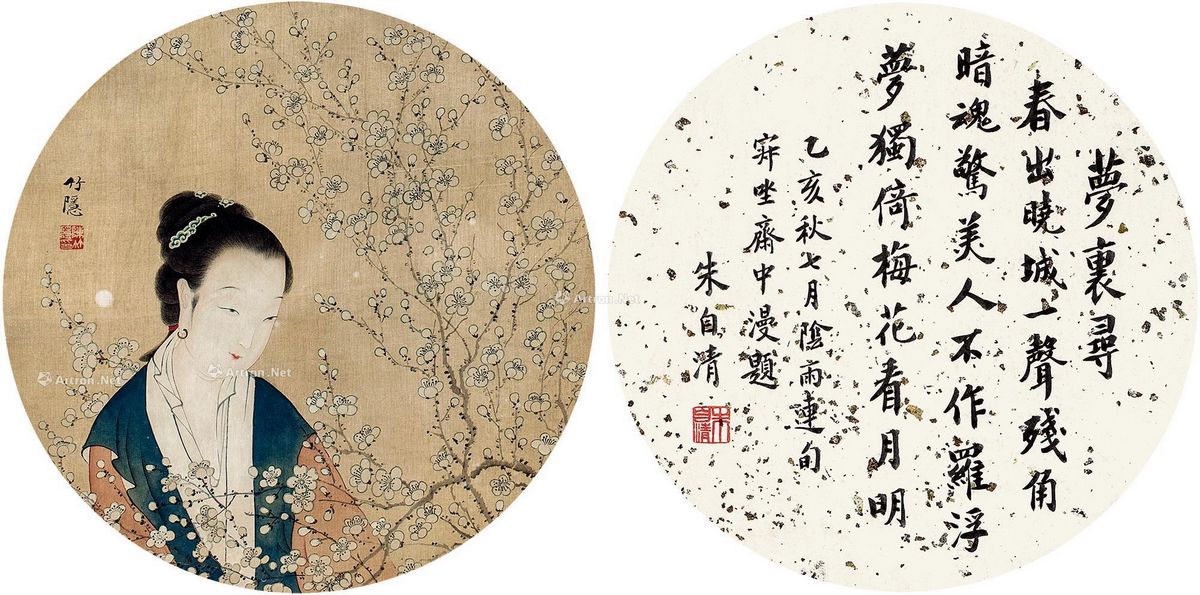 竹隱
夢裏尋
春出曉城一聲殘角
暗魂驚美人不作羅浮
夢獨倚梅花看月明
乙亥秋七月陰雨連旬
坐齋中漫題
朱自清
朱自清
Artron.Net
Artron.Net
Artron.Net
Artron.Net